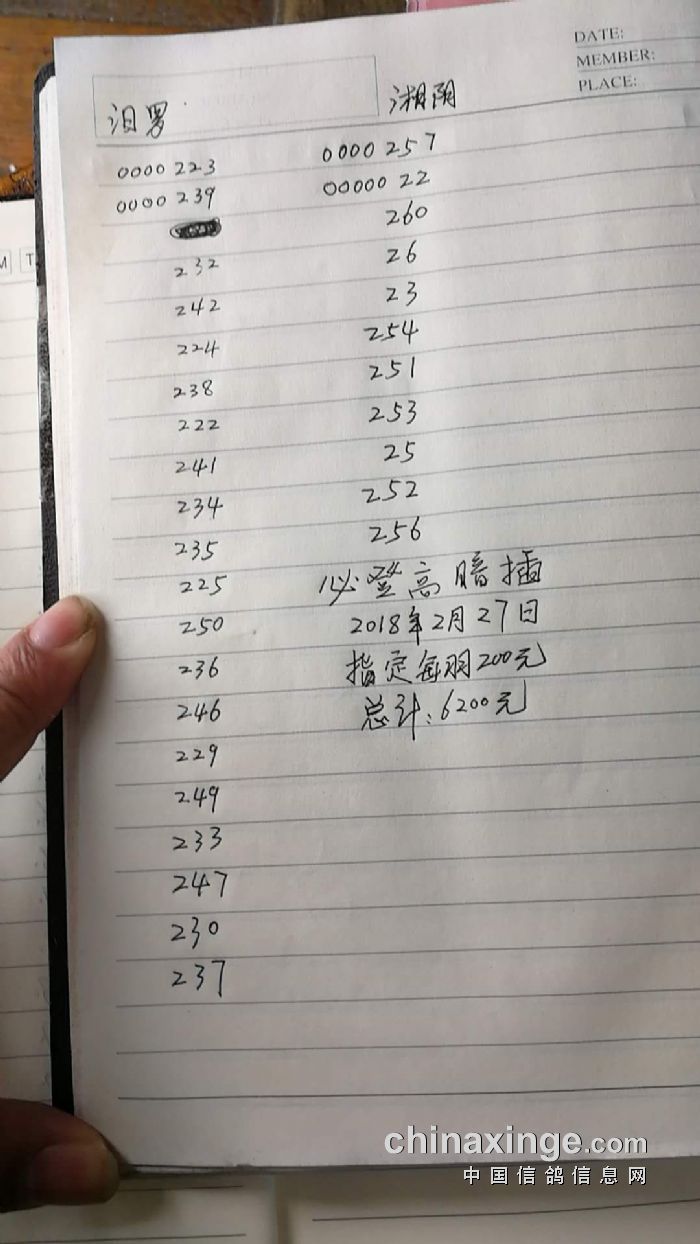 DATE:
MEMBER:
PLACE:
汨罗
湘阴
0000 223
0000 257
0000 239
00000 22
260
232
26
242
23
224
254
238
251
222
253
241
25
234
252
235
256
225
必登高暗插
250
2018年2月27日
236
指定每羽200元
246
总计:6200元
229
249
233
247
230
237
M
T
chinaxinge.com
中国信鸽信息网